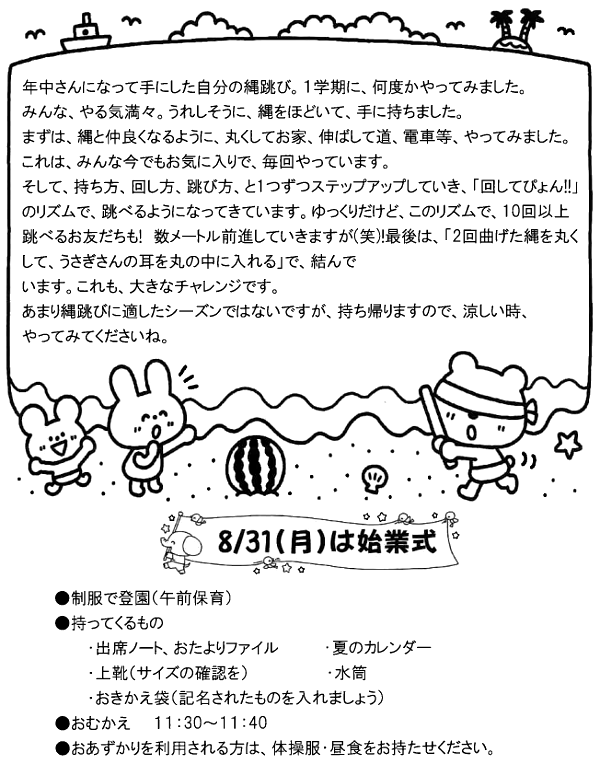 年中さんになって手にした自分の縄跳び。1学期に、何度かやってみました。
みんな、やる気満々。うれしそうに、縄をほどいて、手に持ちました。
まずは、縄と仲良くなるように、丸くしてお家、伸ばして道、電車等、やってみました。
これは、みんな今でもお気に入りで、毎回やっています。
そして、持ち方、回し方、跳び方、と1つずつステップアップしていき、「回してぴょん!!」
のリズムで、跳べるようになってきています。ゆっくりだけど、このリズムで、10回以上
跳べるお友だちも! 数メートル前進していきますが(笑)!最後は、「2回曲げた縄を丸く
して、うさぎさんの耳を丸の中に入れる」で、結んで
います。これも、大きなチャレンジです。
あまり縄跳びに適したシーズンではないですが、持ち帰りますので、涼しい時、
やってみてくださいね。
8/31(月)は始業式
●制服で登園(午前保育)
●持ってくるもの
・出席ノート、おたよりファイル ・夏のカレンダー
・上靴(サイズの確認を) ・水筒
・おきかえ袋(記名されたものを入れましょう)
●おむかえ 11:30～11:40
●おあずかりを利用される方は、体操服・昼食をお持たせください。